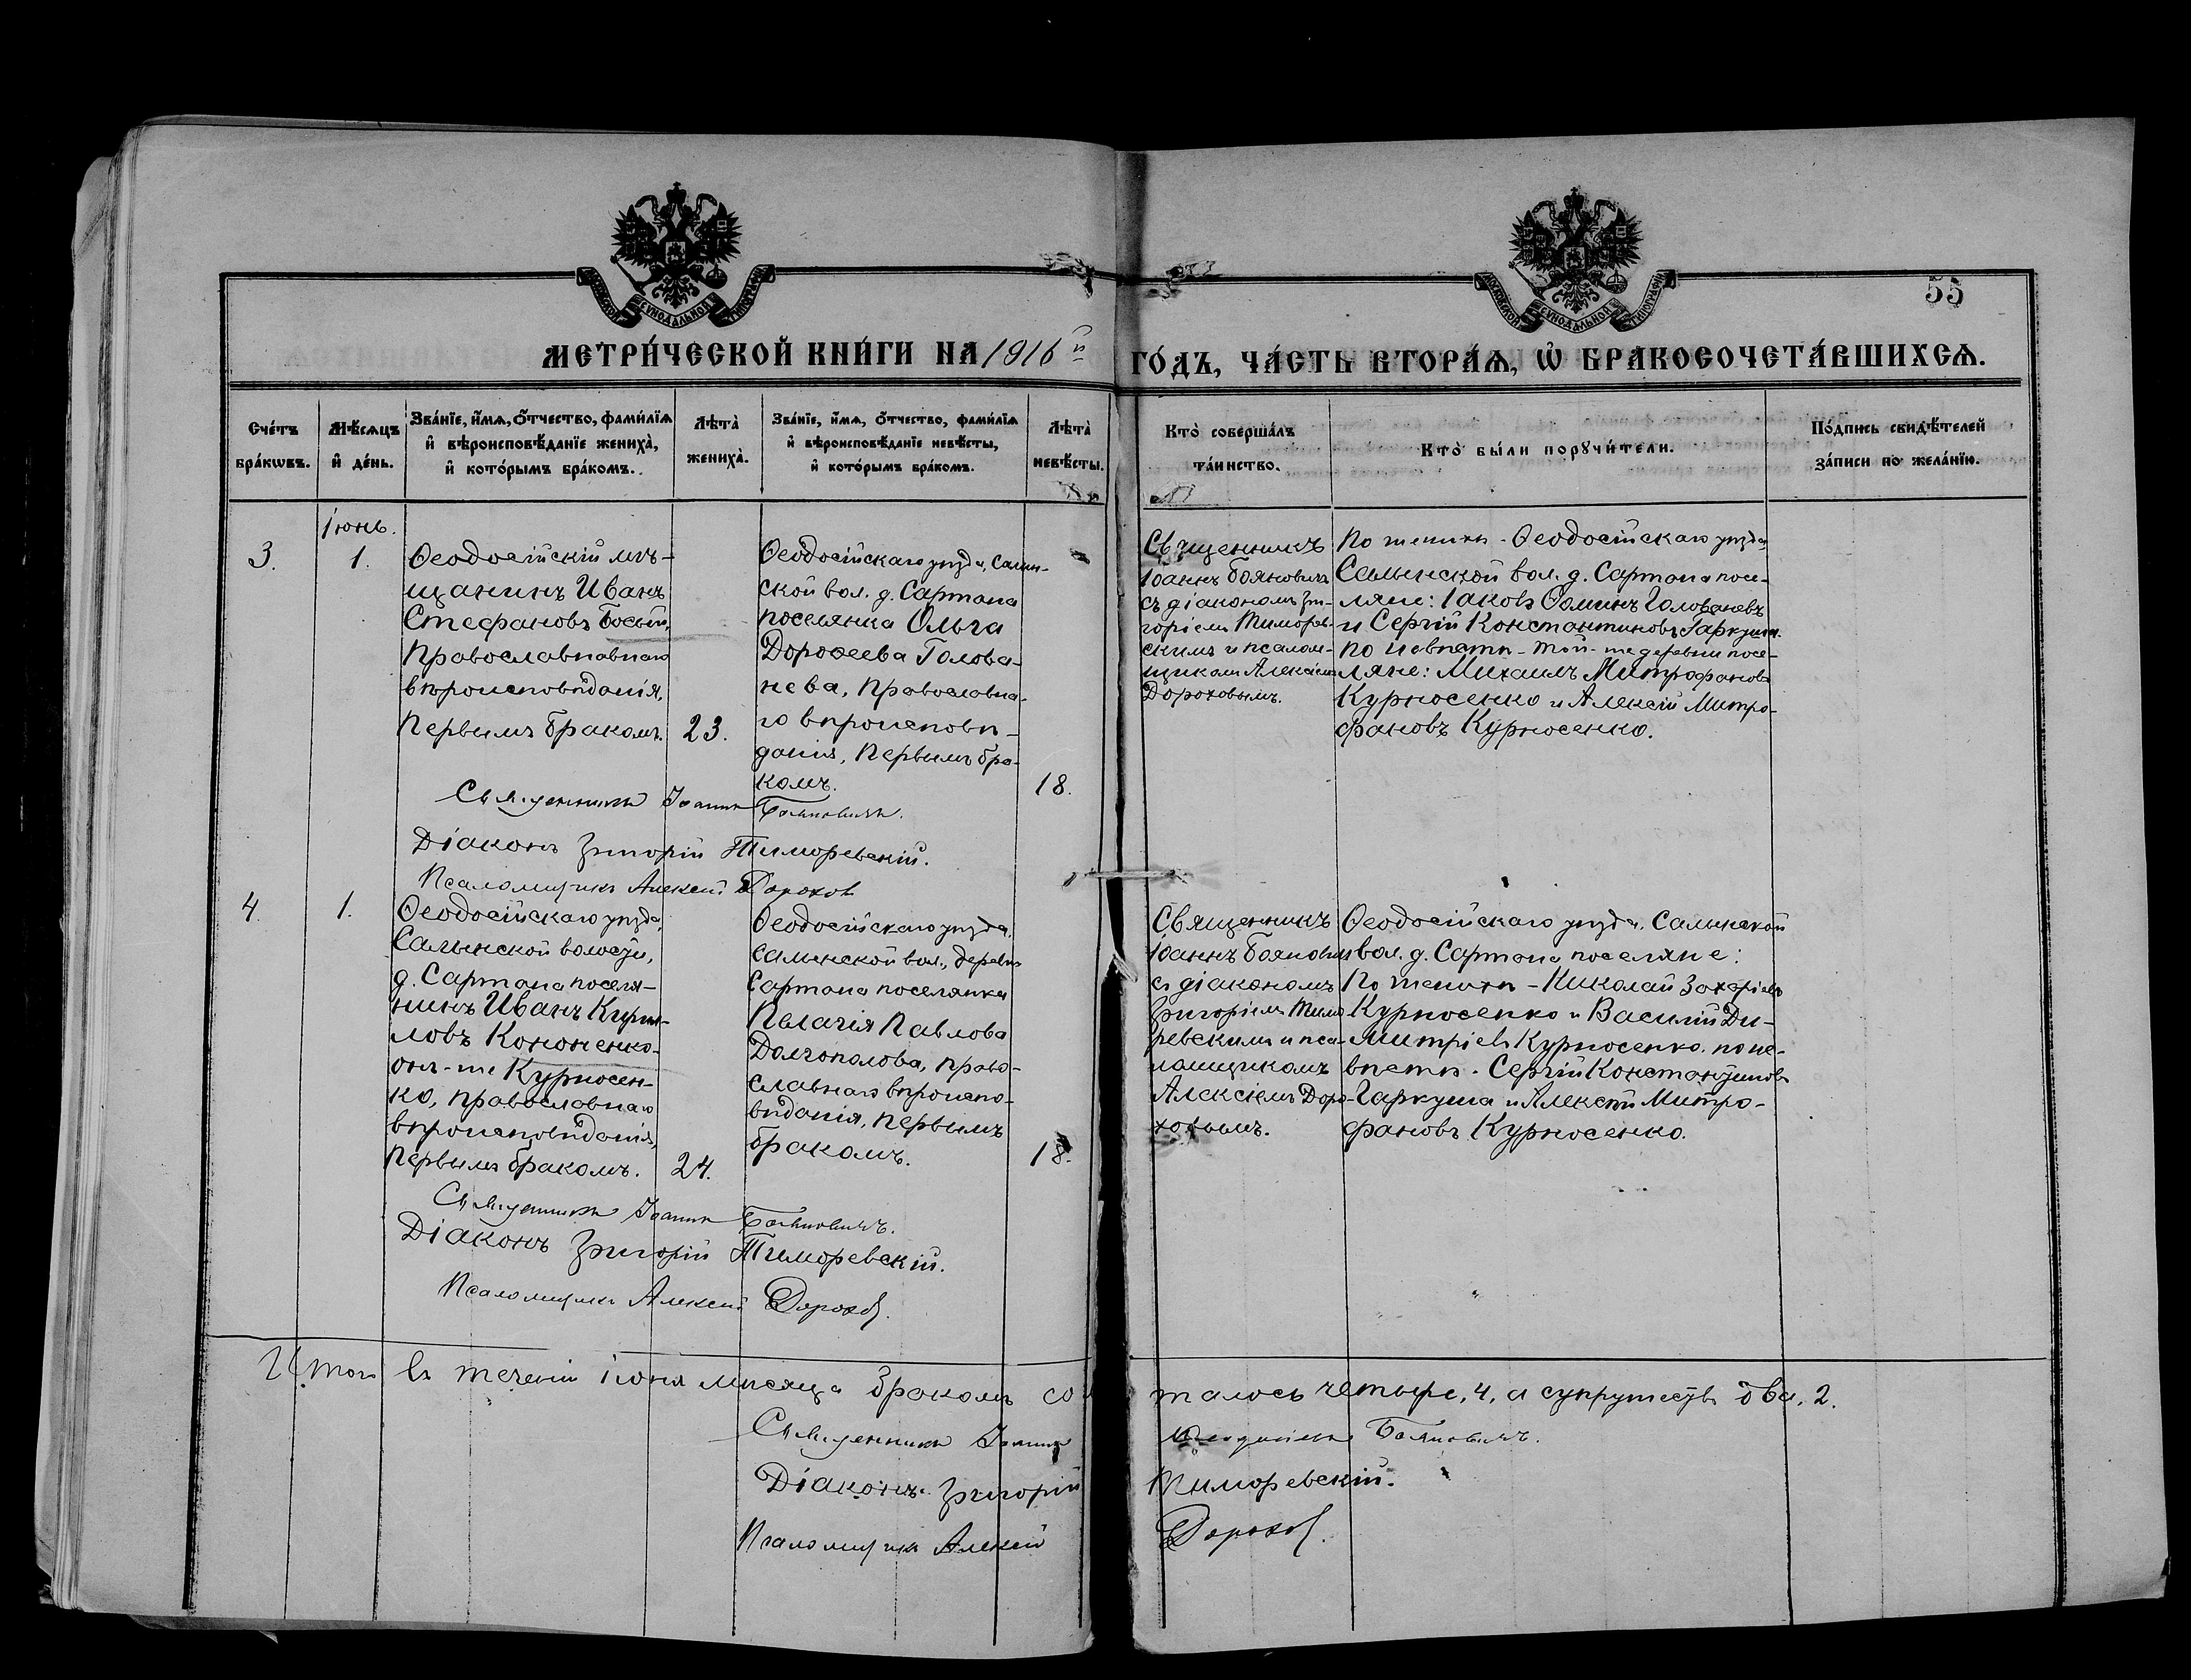 МОСКОВСКОЙ СѴНОДАЛЬНОЙ ТИПОГРАФІИ
МОСКОВСКОЙ СѴНОДАЛЬНОЙ ТИПОГРАФІИ
55
МЕТРИ́ЧЕСКОЙ КНИ́ГИ НА 1916й ГО́ДЪ, ЧА́СТЬ ВТОРА́Ѧ, Ѡ҆ БРАКОСОЧЕТА́ВШИХСѦ.
Сче́тъ
бра́кѡвъ.
Мѣ́сѧцъ
и҆ де́нь.
Зва́нїе, и҆́мѧ, ѻ҆́тчество, фами́лїѧ
и҆ вѣроисповѣ́данїе жениха̀,
и҆ кото́рымъ бра́комъ.
Лѣ́та̀
жениха̀.
Зва́нїе, и҆́мѧ, ѻ҆́тчество, фами́лїѧ
и҆ вѣроисповѣ́данїе невѣ́сты,
и҆ кото́рымъ бра́комъ.
Лѣ́та̀
невѣ́сты.
Кто̀ соверша́лъ
та́инство.
Кто̀ бы́ли порꙋчи́тели.
По́дпись свидѣ́телей
за́писи по жела́нїю.
Іюнь.
3.
1.
Ѳеодосійскій мѣ-
щанинъ Иванъ
Стефановъ Босый,
Православнаго
вѣроисповѣданія,
Первымъ бракомъ.
23.
Ѳеодосійскаго уѣзда, Салын-
ской вол. д. Сартана
поселянка Ольга
Дороѳеева Голова-
нева, Православна-
го вѣроисповѣ-
данія, Первымъ бра-
комъ.
18.
Священникъ
Іоаннъ Бояновичъ
съ діакономъ Гри-
горіемъ Тиморев-
скимъ и псалом-
щикомъ Алексіемъ
Дороховымъ.
По женихѣ - Ѳеодосійскаго уѣзда,
Салынской вол. д. Сартана посе-
ляне: Іаковъ Ѳоминъ Голованевъ
и Сергій Константиновъ Гаркуша.
По невѣстѣ - той-же деревни посе-
ляне: Михаилъ Митрофановъ
Курносенко и Алексій Митро-
фановъ Курносенко.
Священникъ Іоаннъ Бояновичъ.
Діаконъ Григорій Тиморевскій.
Псаломщикъ Алексій Дорохов
4.
1.
Ѳеодосійскаго уѣзда,
Салынской волости,
д. Сартана поселя-
нинъ Иванъ Кирил-
ловъ Кононенко-
онъ-же Курносен-
ко, православнаго
вѣроисповѣданія,
Первымъ бракомъ.
24.
Ѳеодосійскаго уѣзда,
Салынской вол., деревни
Сартана поселянка
Пелагія Павлова
Долгополова, право-
славнаго вѣроиспо-
вѣданія, Первымъ
бракомъ.
18.
Священникъ
Іоаннъ Бояновичъ
съ діакономъ
Григоріемъ Тимо-
ревскимъ и пса-
ломщикомъ
Алексіемъ Доро-
ховымъ.
Ѳеодосійскаго уѣзда, Салынской
вол. д. Сартана поселяне:
По женихѣ - Николай Захаріевъ
Курносенко и Василій Ди-
митріевъ Курносенко. по не-
вѣстѣ - Сергій Константиновъ
Гаркуша и Алексѣй Митро-
фановъ Курносенко.
Священникъ Іоаннъ Бояновичъ.
Діаконъ Григорій Тиморевскій.
Псаломщикъ Алексій Дорохов.
Итого въ теченіи Іюня мѣсяца бракомъ соче талось четыре, 4, а супружествъ два, 2.
Священникъ Іоаннъ Бояновичъ.
Діаконъ Григорій Тиморевскій.
Псаломщикъ Алексій Дорохов.